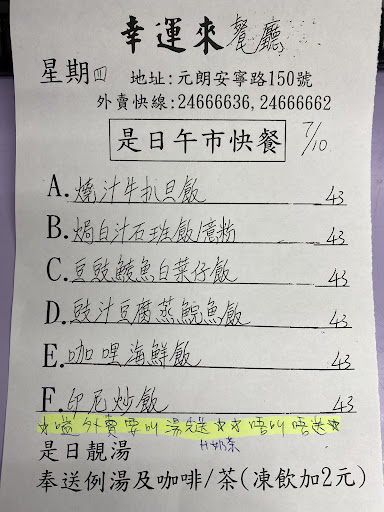 幸運來餐廳
星期四 地址:元朗安寧路150號
外賣快線:24666636,24666662
是日午市快餐 7/10
A.燒汁牛扒旦飯 43
B.焗白汁石班飯/意粉 43
C.豆豉鯪魚白菜仔飯 43
D.豉汁豆腐蒸鯇魚飯 43
E.咖哩海鮮飯 43
F.印尼炒飯 43
外賣要叫湯送 唔叫唔送
是日靚湯
奉送例湯及咖啡/茶(凍飲加2元)